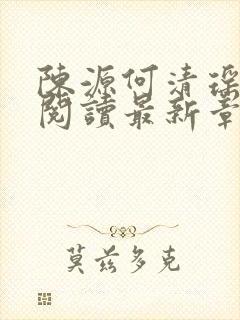 陳源何清瑤
閱讀最新章
莫茲多克